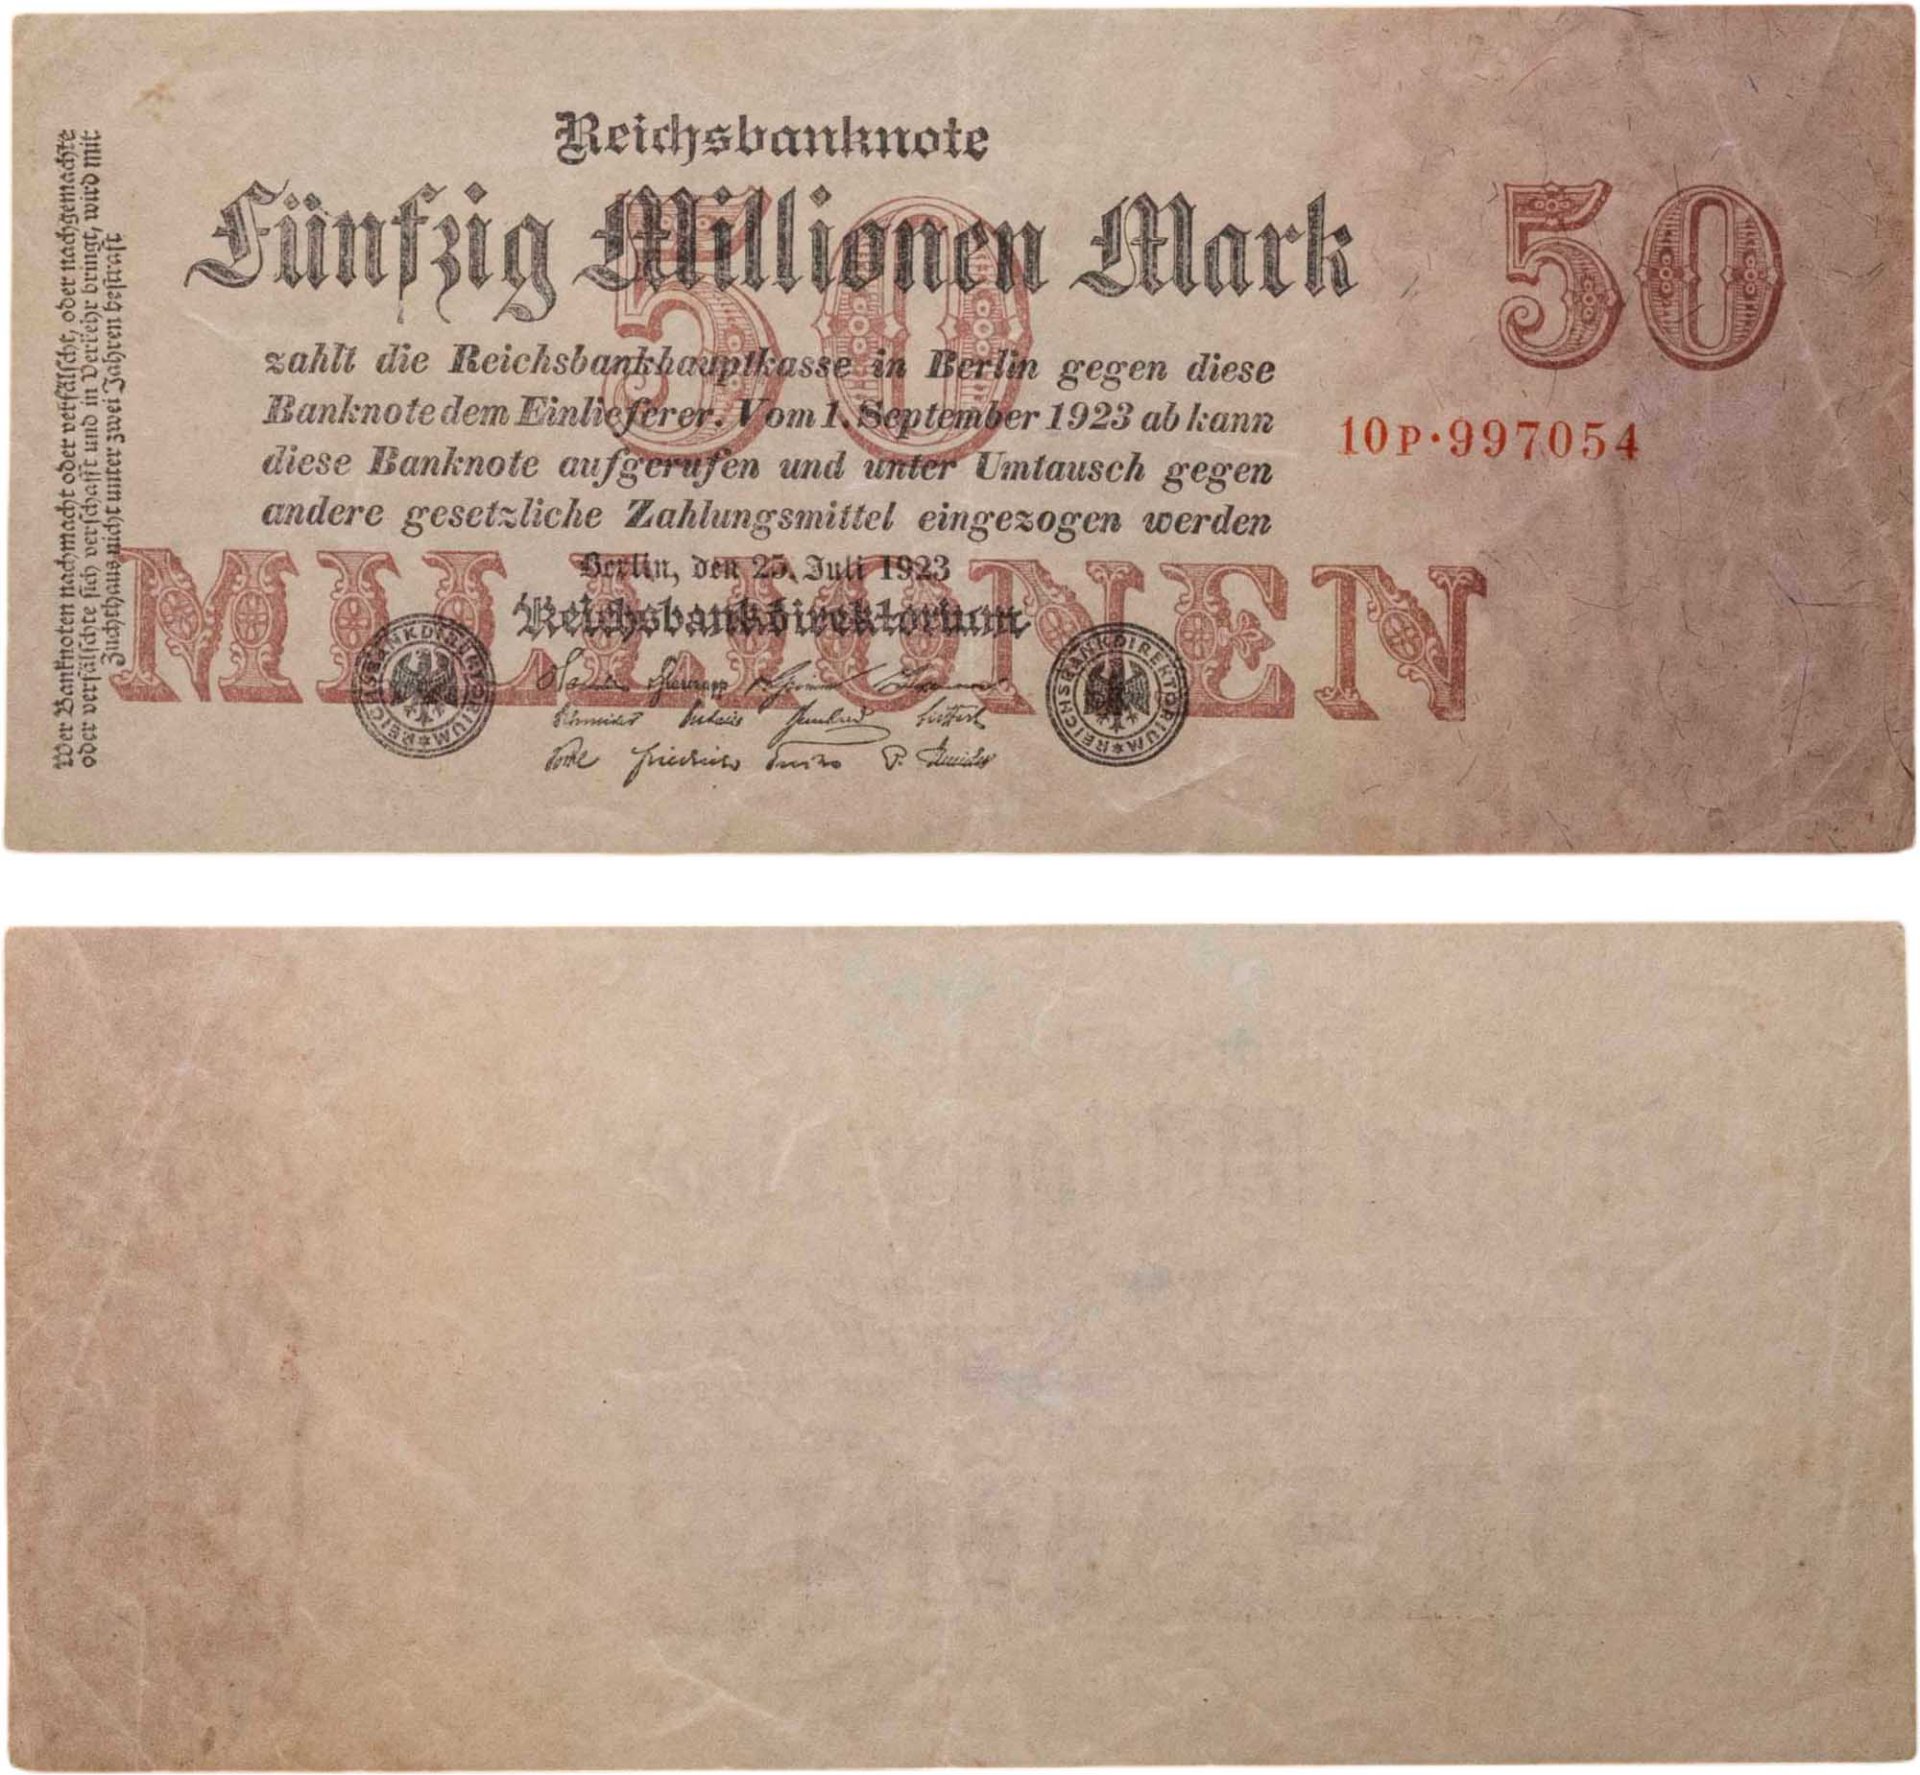 Reichsbanknote
Fünfzig Millionen Mark
50
50
zahlt die Reichsbankhauptkasse in Berlin gegen diese
Banknote dem Einlieferer. Vom 1. September 1923 ab kann
diese Banknote aufgerufen und unter Umtausch gegen
andere gesetzliche Zahlungsmittel eingezogen werden
10P·997054
MILLIONEN
Berlin, den 25. Juli 1923
Reichsbankdirektorium
REICHSBANKDIREKTORIUM
REICHSBANKDIREKTORIUM
Schneider
Kauffmann
Vocke Friedrich P. Schneider
Wer Banknoten nachmacht oder verfälscht, oder nachgemachte
oder verfälschte sich verschafft und in Verkehr bringt, wird mit
Zuchthaus nicht unter zwei Jahren bestraft